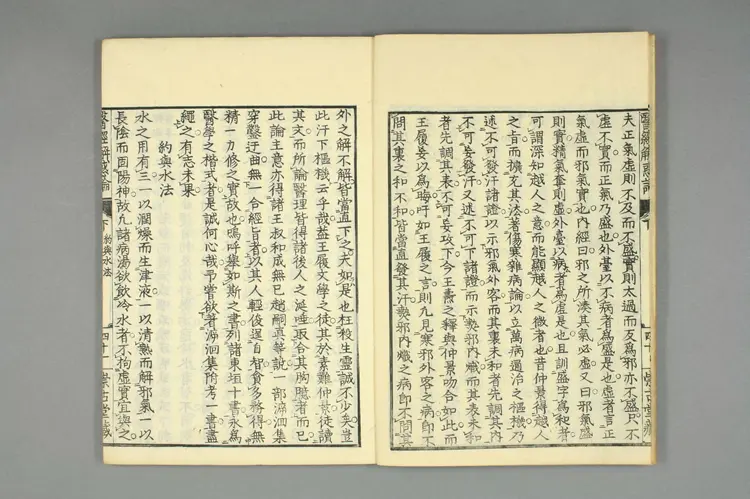 夫正氣虛則不及而不盛實則太過而反爲邪亦不盛只不
虛不實而正氣乃盛也外臺以不病者爲盛是也虛者言正
氣虛而邪氣實也內經曰邪之所湊其氣必虛又曰邪氣盛
則實精氣奪則虛外臺以病者爲虛是也且訓盛字爲和者
可謂深知越人之意而能顯越人之微者也昔仲景得越人
之旨而擴充其法著傷寒雜病論以立萬病通治之樞機乃
述不可發汗諸證以示邪氣外客而其裏未和者先調其內
不可妄發汗又述不可下諸證而示熱邪內熾而其表未和
者先調其表不可妄攻下今王燾之釋與仲景吻合如此而
王履妄以爲晦吁如王履之言則凡見寒邪外客之病即不
問其裏之和不和皆當直發其汗熱邪內熾之病即不問其
醫經解惑論
外之解不解皆當直下之夫如是也枉殺生靈誠不少矣豈
此汗下樞機云乎哉蓋王履文學之徒其於素難仲景徒讀
其文而所論醫理皆得諸後人之涎唾取合其胸臆者而已
此論主意亦得諸王叔和成無已趙嗣真等說一部溯洄集
穿鑿迂曲無一合經旨者以其人輕俊逞自智貪多務得無
精一力修之實故也嗚呼集如斯之書列諸東垣十書永爲
醫學之楷式者是誠何心哉予嘗欲著溯洄集附考一書盡
繩之有志未果
約與水法
水之用有三一以潤燥而生津液一以清熱而解邪氣一以
長陰而固陽神故凡諸病渴欲飲冷水者不拘虛實宜與之
下
約與水法
四十一
崇古堂藏